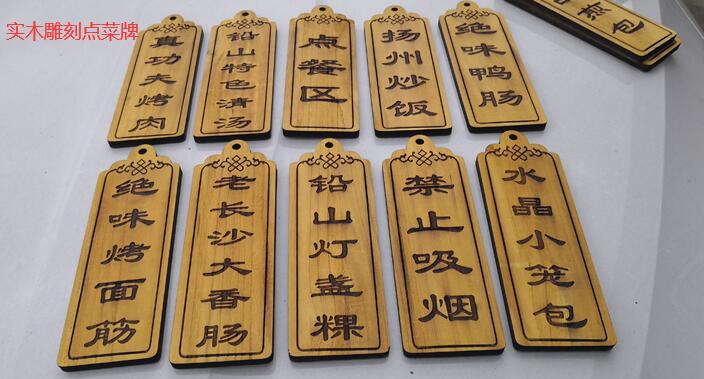 实木雕刻点菜牌
真功夫烤肉
铅山特色清汤
点餐区
扬州炒饭
绝味鸭肠
绝味烤面筋
老长沙大香肠
铅山灯盏粿
禁止吸烟
水晶小笼包
包